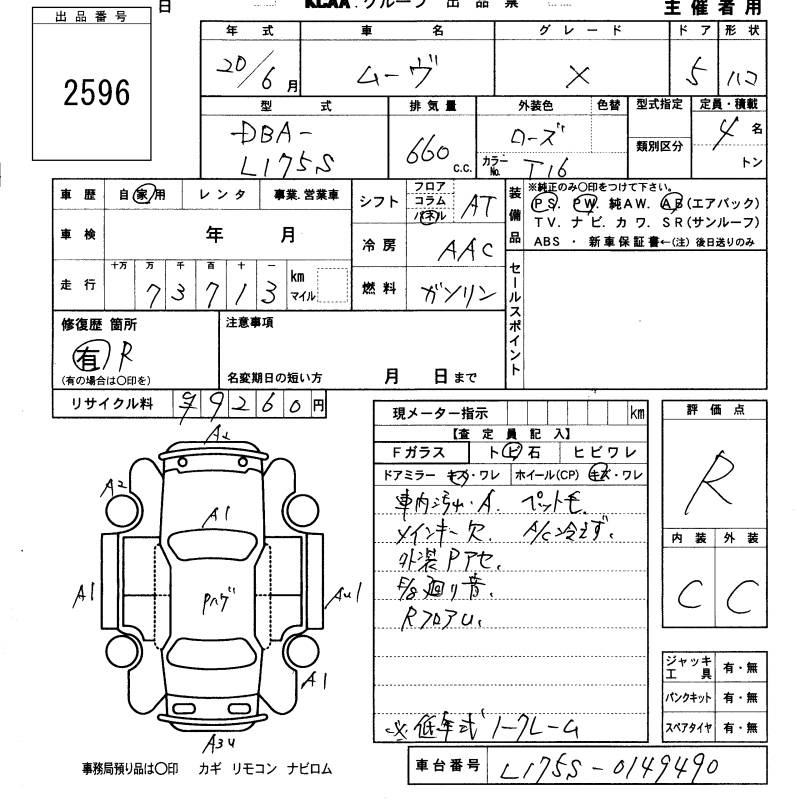 出品番号
2596
日
KCAA.グループ 出品票
主催者用
年式 車名 グレード ドア 形状
20/6月 ムーヴ X 5 ハコ
型式 排気量 外装色 色替 型式指定 定員・積載
DBA-L175S 660 c.c. ローズ 類別区分 4名
カラーNo. T16 トン
車歴 自家用 レンタ 事業.営業車
シフト フロア コラム パネル AT
装備品
※純正のみ〇印をつけて下さい。
PS. PW. 純AW. AB(エアバック)
TV. ナビ. カワ. SR(サンルーフ)
ABS ・ 新車保証書←(注)後日送りのみ
車検 年 月
冷房 AAC
走行 十万 万 千 百 十 一
73713 km マイル
燃料 ガソリン
セールスポイント
修復歴 箇所
有 R
(有の場合は〇印を)
注意事項
名変期日の短い方 月 日まで
リサイクル料 9260円
現メーター指示 km
【査定員記入】
Fガラス トビ石 ヒビワレ
ドアミラー キズ・ワレ ホイール(CP) キズ・ワレ
車内汚れ・A. ペット毛
メインキー欠. A/C冷えず.
外装Pアセ.
F/8廻り音.
RフロアU.
※低年式ノークレーム
評価点
R
内装 外装
C C
ジャッキ工具 有・無
パンクキット 有・無
スペアタイヤ 有・無
A2
A2
A1
A1
Pハゲ
AU1
A1
A3U
事務局預り品は〇印 カギ リモコン ナビロム
車台番号 L175S-0149490